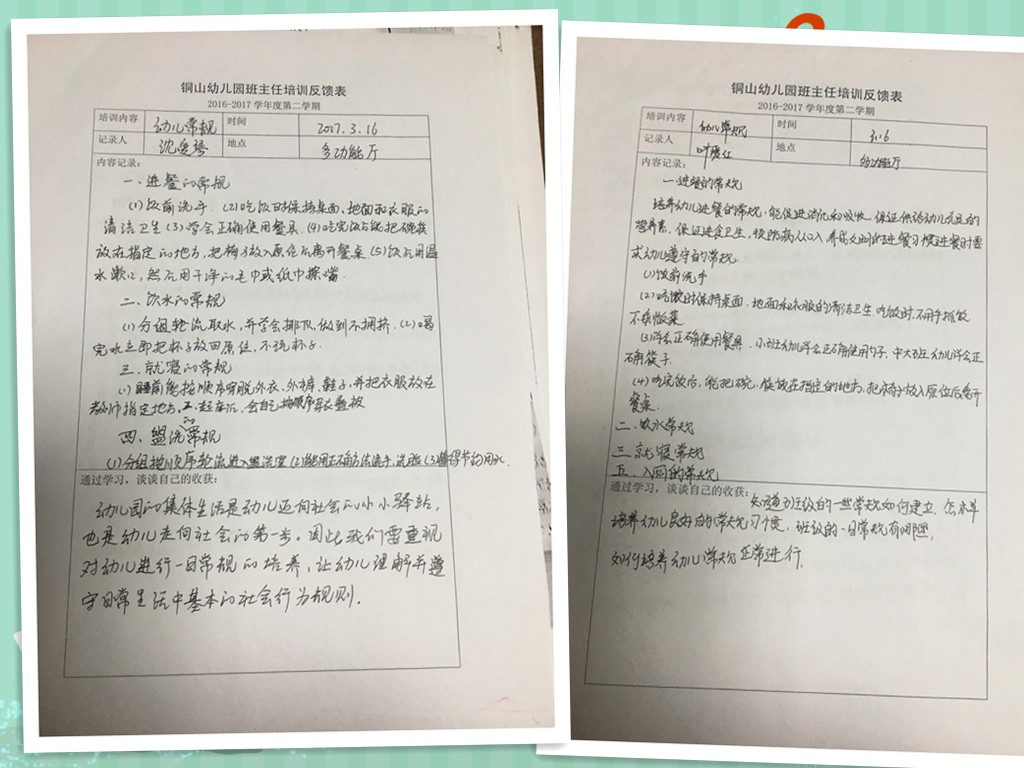 铜山幼儿园班主任培训反馈表
2016-2017 学年度第二学期
培训内容 幼儿常规 时间 2017.3.16
记录人 沈 地点 多功能厅
内容记录：
一、进餐的常规
(1)饭前洗手.(2)吃饭时保持桌面、地面和衣服的
清洁卫生(3)学会正确使用餐具.(4)吃完饭后能把碗筷
放在指定的地方,把椅子放入原位后离开餐桌(5)饭后用温
水漱口,然后用干净的毛巾或纸巾擦嘴.
二、饮水的常规
(1)分组轮流取水,并学会排队,做到不拥挤.(2)喝
完水立即把杯子放回原位,不玩杯子.
三、就寝的常规
(1)睡前能按顺序穿脱外衣、外裤、鞋子,并把衣服放在
教师指定地方.2.起床后,会自己按顺序穿衣叠被
四、盥洗的常规
(1)分组按顺序轮流进入盥洗室(2)能用正确方法洗手、洗脸(3)懂得节约用水.
通过学习，谈谈自己的收获：
幼儿园的集体生活是幼儿迈向社会的小小驿站,
也是幼儿走向社会的第一步。因此我们需重视
对幼儿进行一日常规的培养,让幼儿理解并遵
守日常生活中基本的社会行为规则.
铜山幼儿园班主任培训反馈表
2016-2017 学年度第二学期
培训内容 幼儿常规 时间 3.16
记录人 叶 地点 多功能厅
内容记录：
一.进餐的常规
培养幼儿进餐的常规,能促进消化和吸收,保证供给幼儿充足的
营养素,保证进食卫生,预防病从口入,养成文明的进餐习惯进餐时要
求幼儿遵守的常规
(1)饭前洗手
(2)吃饭时保持桌面.地面和衣服的清洁卫生 吃饭时.不用手抓饭
不挑饭菜
(3)学会正确使用餐具.小班幼儿学会正确使用勺子.中大班幼儿学会正
确筷子.
(4)吃完饭后,能把碗.筷放在指定的地方.把椅子放入原位后离开
餐桌.
二、饮水常规
三、就寝常规
五、入园的常规
通过学习，谈谈自己的收获： 知道班级的一些常规如何建立.怎样
培养幼儿良好的常规习惯,班级的一日常规有哪些,
如何培养幼儿常规正常进行.